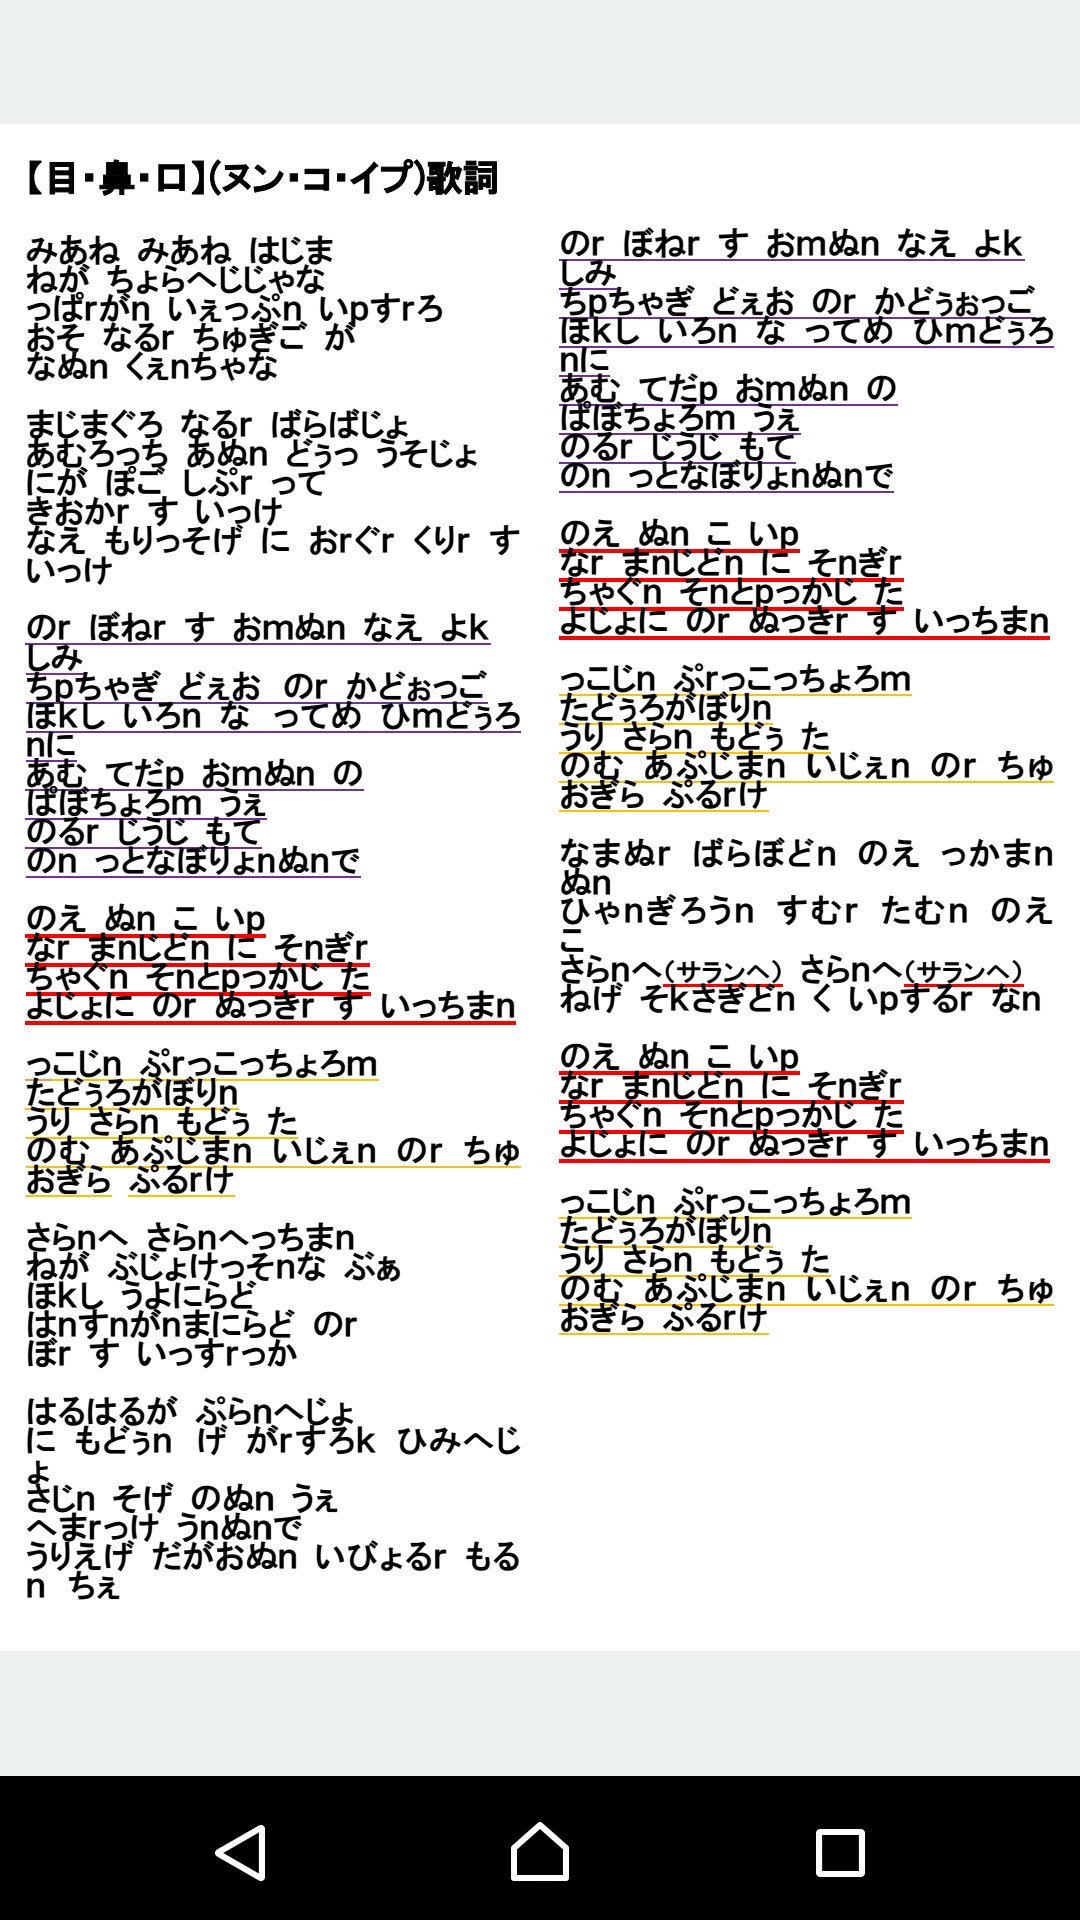 【目・鼻・口】(ヌン・コ・イプ)歌詞
みあね みあね はじま
ねが ちょらへじじゃな
っぱrがn いぇっぷn いpすrろ
おそ なるr ちゅぎご が
なぬn くぇnちゃな
まじまぐろ なるr ばらばじょ
あむろっち あぬn どぅっ うそじょ
にが ぽご しぷr って
きおかr す いっけ
なえ もりっそげ に おrぐr くりr す
いっけ
のr ぼねr す おmぬn なえ よk
しみ
ちpちゃぎ どぇお のr かどぉっご
ほkし いろn な ってめ ひmどぅろ
nに
あむ てだp おmぬn の
ぱぼちょろm うぇ
のるr じうじ もて
のn っとなぼりょnぬnで
のえ ぬn こ いp
なr まnじどn に そnぎr
ちゃぐn そnとpっかじ た
よじょに のr ぬっきr す いっちまn
っこじn ぷrっこっちょろm
たどぅろがぼりn
うり さらn もどぅ た
のむ あぷじまn いじぇn のr ちゅ
おぎら ぷるrけ
さらnへ さらnへっちまn
ねが ぶじょけっそnな ぶぁ
ほkし うよにらど
はnすnがnまにらど のr
ぼr す いっすrっか
はるはるが ぷらnへじょ
に もどぅn げ がrすろk ひみへじ
ょ
さじn そげ のぬn うぇ
へまrっけ うnぬnで
うりえげ だがおぬn いびょるr もる
n ちぇ
のr ぼねr す おmぬn なえ よk
しみ
ちpちゃぎ どぇお のr かどぅぉっご
ほkし いろn な ってめ ひmどぅろ
nに
あむ てだp おmぬn の
ぱぼちょろm うぇ
のるr じうじ もて
のn っとなぼりょnぬnで
のえ ぬn こ いp
なr まnじどn に そnぎr
ちゃぐn そnとpっかじ た
よじょに のr ぬっきr す いっちまn
っこじn ぷrっこっちょろm
たどぅろがぼりn
うり さらn もどぅ た
のむ あぷじまn いじぇn のr ちゅ
おぎら ぷるrけ
なまぬr ばらぼどn のえ っかまn
ぬn
ひゃnぎろうn すむr たむn のえ
こ
さらnへ(サランヘ) さらnへ(サランヘ)
ねげ そkさぎどn く いpするr なn
のえ ぬn こ いp
なr まnじどn に そnぎr
ちゃぐn そnとpっかじ た
よじょに のr ぬっきr す いっちまn
っこじn ぷrっこっちょろm
たどぅろがぼりn
うり さらn もどぅ た
のむ あぷじまn いじぇn のr ちゅ
おぎら ぷるrけ